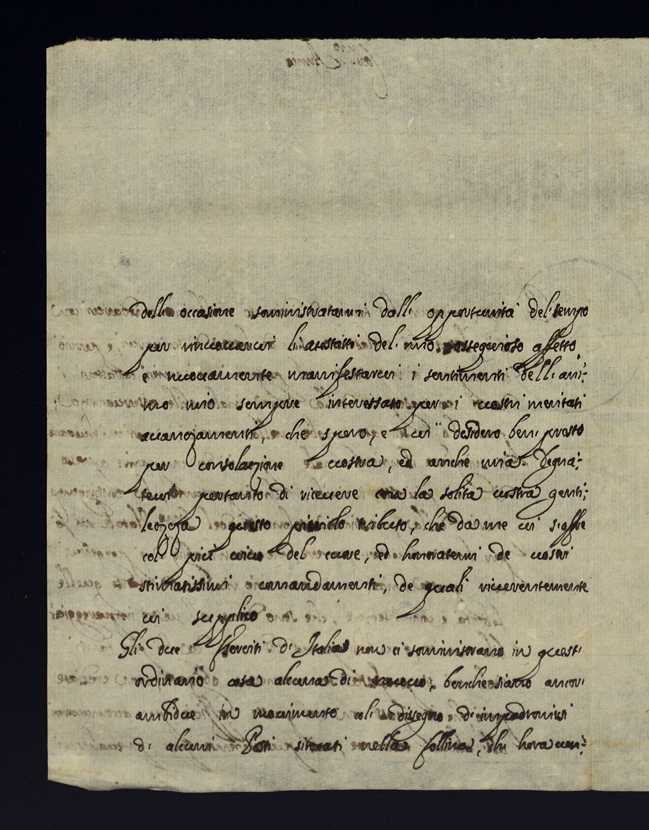 dell: occasione somministratami dall: opportunità del tempo
per rinovarvi li attestati del mio ossequioso affetto
e nuovamente manifestarvi i sentimenti dell: ani:
mo mio sempre interessato per i vostri meritati
avanzamenti, che spero, e vi desidero ben presto
per consolazione vostra, ed anche mia. Degna:
temi pertanto di ricevere con la solita vostra genti:
lezza questo picciolo tributo, che da me vi s'offre
col più vivo del cuore, ed honoratemi de vostri
stimatissimi comandamenti, de quali riverentemente
vi supplico
Gli due Eserciti d'Italia non ci somministrano in quest:
ordinario cosa alcuna di nuovo, benche siano
ambidue in movimento col dissegno d'impadronirsi
di alcuni Posti situati nella Collina, che hora ven: